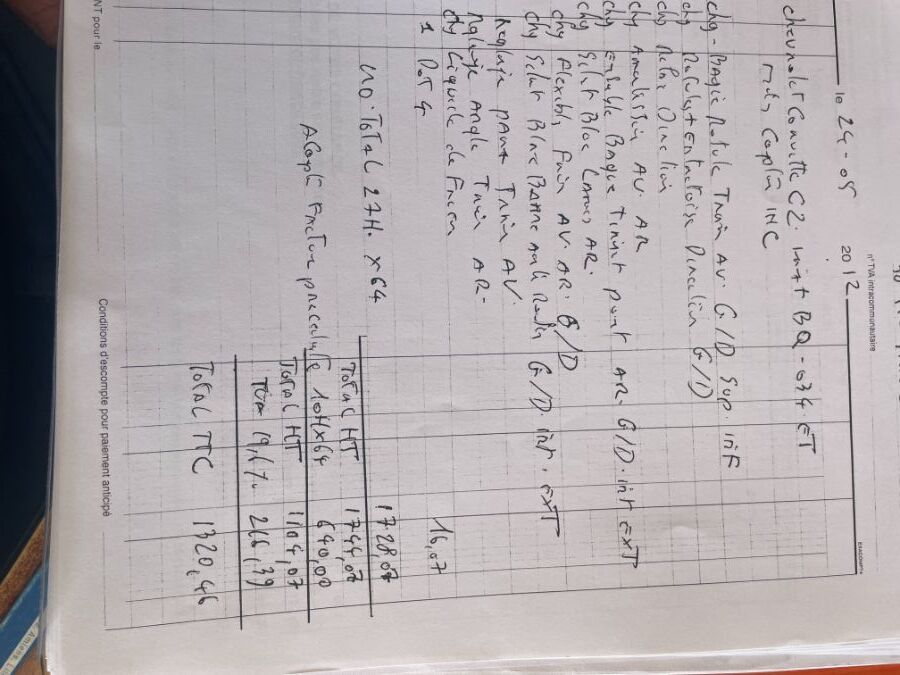 le 24-05 2012
n° TVA intracommunautaire
EXACOMPTA
Chevrolet Corvette C2. immt BQ-034 ET
INC
chg - Bague Rotule Train AV. G/D Sup. inF
chg Rotules + Entretoise Direction G/D
chg Relai Direction
chg Amortisseur AV. AR
chg Ensemble Bague Tirant pont AR. G/D. int EXT
chg Silent Bloc Lames AR.
chg Flexibles Frein AV. AR. G/D
chg Silent Bloc Barre anti Roulis G/D. int. EXT
Reglage pont Train AV.
Reglage Angle Train AR-
chg Liquide de Frein
1 DOT 4 16,07
MO. ToTAL 27H. x64 1728,00
ToTAL HT 1744,07
Facture 10Hx64 640,00
ToTAL HT 1104,07
TVA 19,6% 216,39
ToTAL TTC 1320,46
NT pour le
Conditions d'escompte pour paiement anticipé